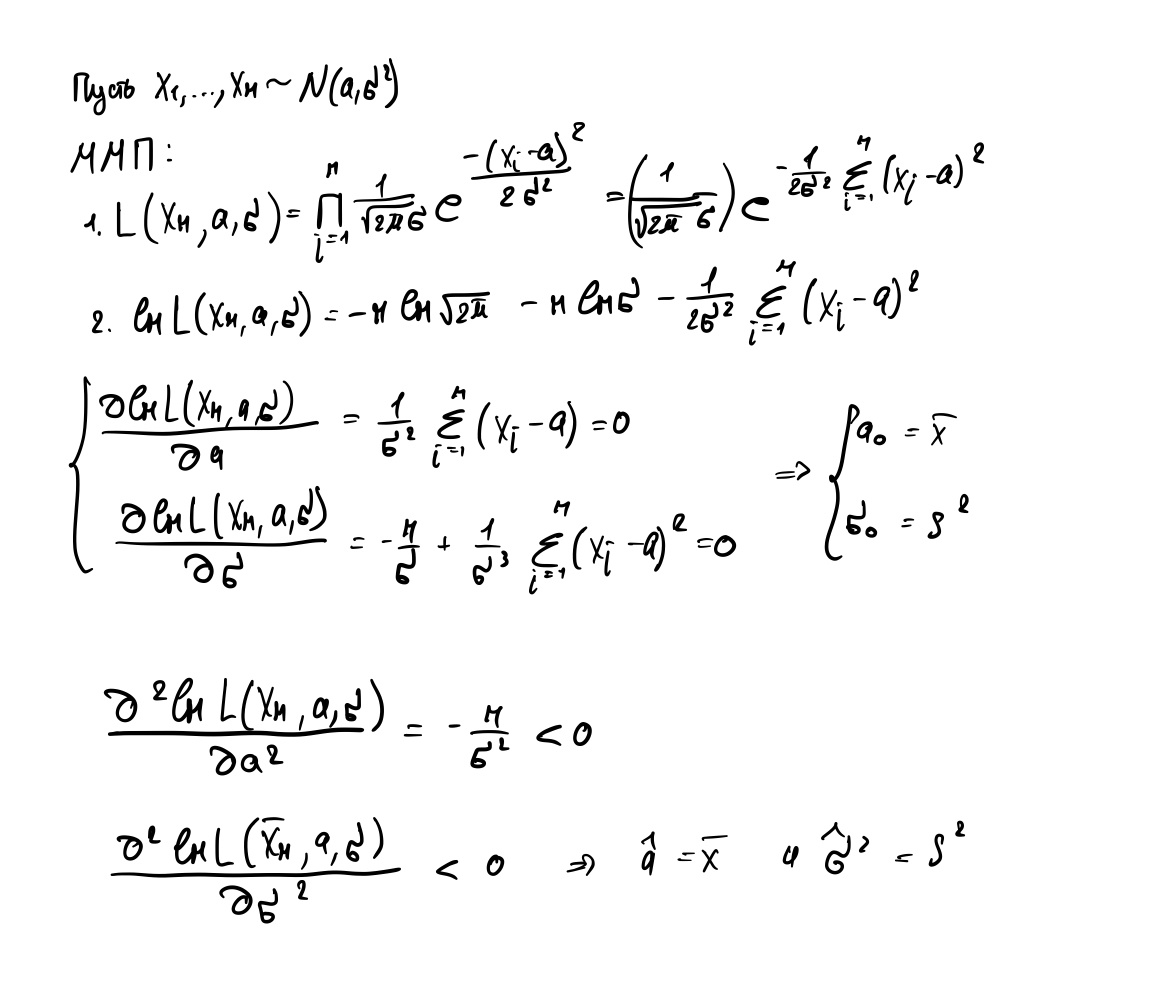 Пусть X₁,...,Xₙ ~ N(a,σ²)
ММП:
1. L(Xₙ, a, σ) = ∏ᵢ₌₁ⁿ 1/(√(2π) σ) e^(-(xᵢ-a)²/(2σ²)) = (1/(√(2π) σ)) e^(-1/(2σ²) ∑ᵢ₌₁ⁿ (xᵢ-a)²)
2. ln L(Xₙ, a, σ) = -n ln √(2π) - n ln σ - 1/(2σ²) ∑ᵢ₌₁ⁿ (xᵢ - a)²
{ ∂ ln L(Xₙ, a, σ)/∂a = 1/σ² ∑ᵢ₌₁ⁿ (xᵢ - a) = 0
∂ ln L(Xₙ, a, σ)/∂σ = -n/σ + 1/σ³ ∑ᵢ₌₁ⁿ (xᵢ - a)² = 0
=> { a₀ = x̄
σ₀ = s²
∂² ln L(Xₙ, a, σ)/∂a² = -n/σ² < 0
∂² ln L(X̄ₙ, a, σ)/∂σ² < 0 => â = x̄ и σ̂² = s²